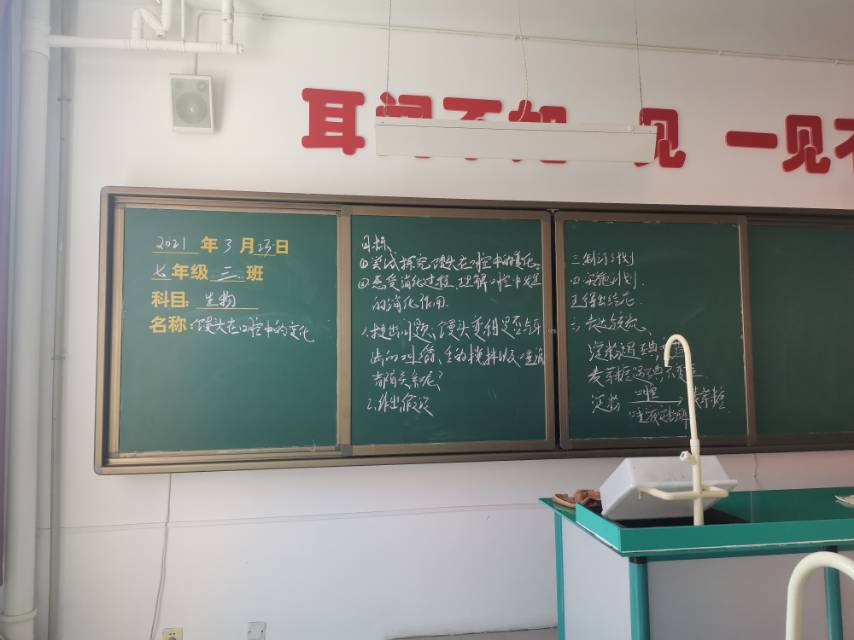 耳闻不如一见 一见不
2021年3月23日
七年级三班
科目:生物
名称:馒头在口腔中的变化
目标:
①尝试探究馒头在口腔中的变化。
②感受消化过程,理解口腔中发生
的消化作用.
1.提出问题、馒头变甜是否与牙
齿的咀嚼、舌的搅拌以及唾液
都有关系呢?
2.作出假设
三制订计划
四.实施计划.
五得出结论
六、表达交流、
淀粉遇碘变蓝
麦芽糖遇碘不变蓝
淀粉 口腔 麦芽糖
唾液淀粉酶